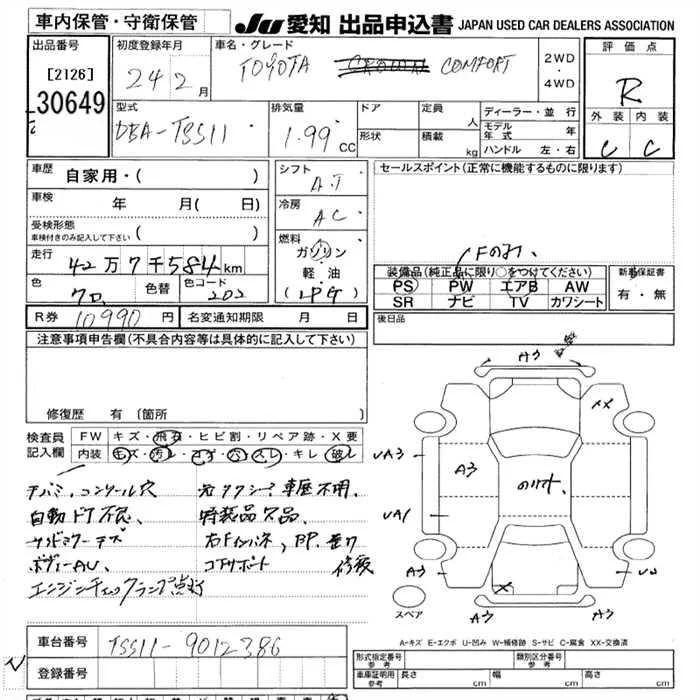 車内保管・守衛保管
JU 愛知 出品申込書 JAPAN USED CAR DEALERS ASSOCIATION
出品番号
[2126]
30649
初度登録年月
24年2月
車名・グレード
TOYOTA CROWN COMFORT
2WD
・
4WD
評価点
R
外装 内装
C C
型式
DBA-TSS11
排気量
1.99 cc
ドア
形状
定員
人
積載
kg
ディーラー・並行
モデル年式 年
ハンドル 左・右
車歴
自家用・( )
車検
年 月( 日)
受検形態
車検付きのみ記入して下さい
( )
走行
42万7千584km
色
クロ
色替
色コード
202
シフト
AT
冷房
AC
燃料
ガソリン
軽油
(LPG)
セールスポイント(正常に機能するものに限ります)
Fのみ
装備品(純正品に限り○をつけてください)
PS PW エアB AW
SR ナビ TV カワシート
新車保証書
有・無
R券 10990円
名変通知期限 月 日
後日品
注意事項申告欄(不具合内容等は具体的に記入して下さい)
修復歴 有 〔箇所
検査員
記入欄
FW キズ・飛石・ヒビ割・リペア跡・X要
内装 キズ・汚レ・コゲ・ハガレ・キレ・破レ
コンソール穴
元タクシー車歴不明
自動ドア不良、
特装品欠品
ボディーAU、
コアサポート 修復
エンジンチェックランプ点灯
A3
XX
UA3
A3
UA1
A3
X
U2
A3
A3
スペア
A-キズ E-エクボ U-凹み W-補修跡 S-サビ C-腐食 XX-交換済
車台番号
TSS11-9012386
登録番号
形式指定番号
参考
類別区分番号
参考
車庫証明用
参考
長さ cm 幅 cm 高さ cm